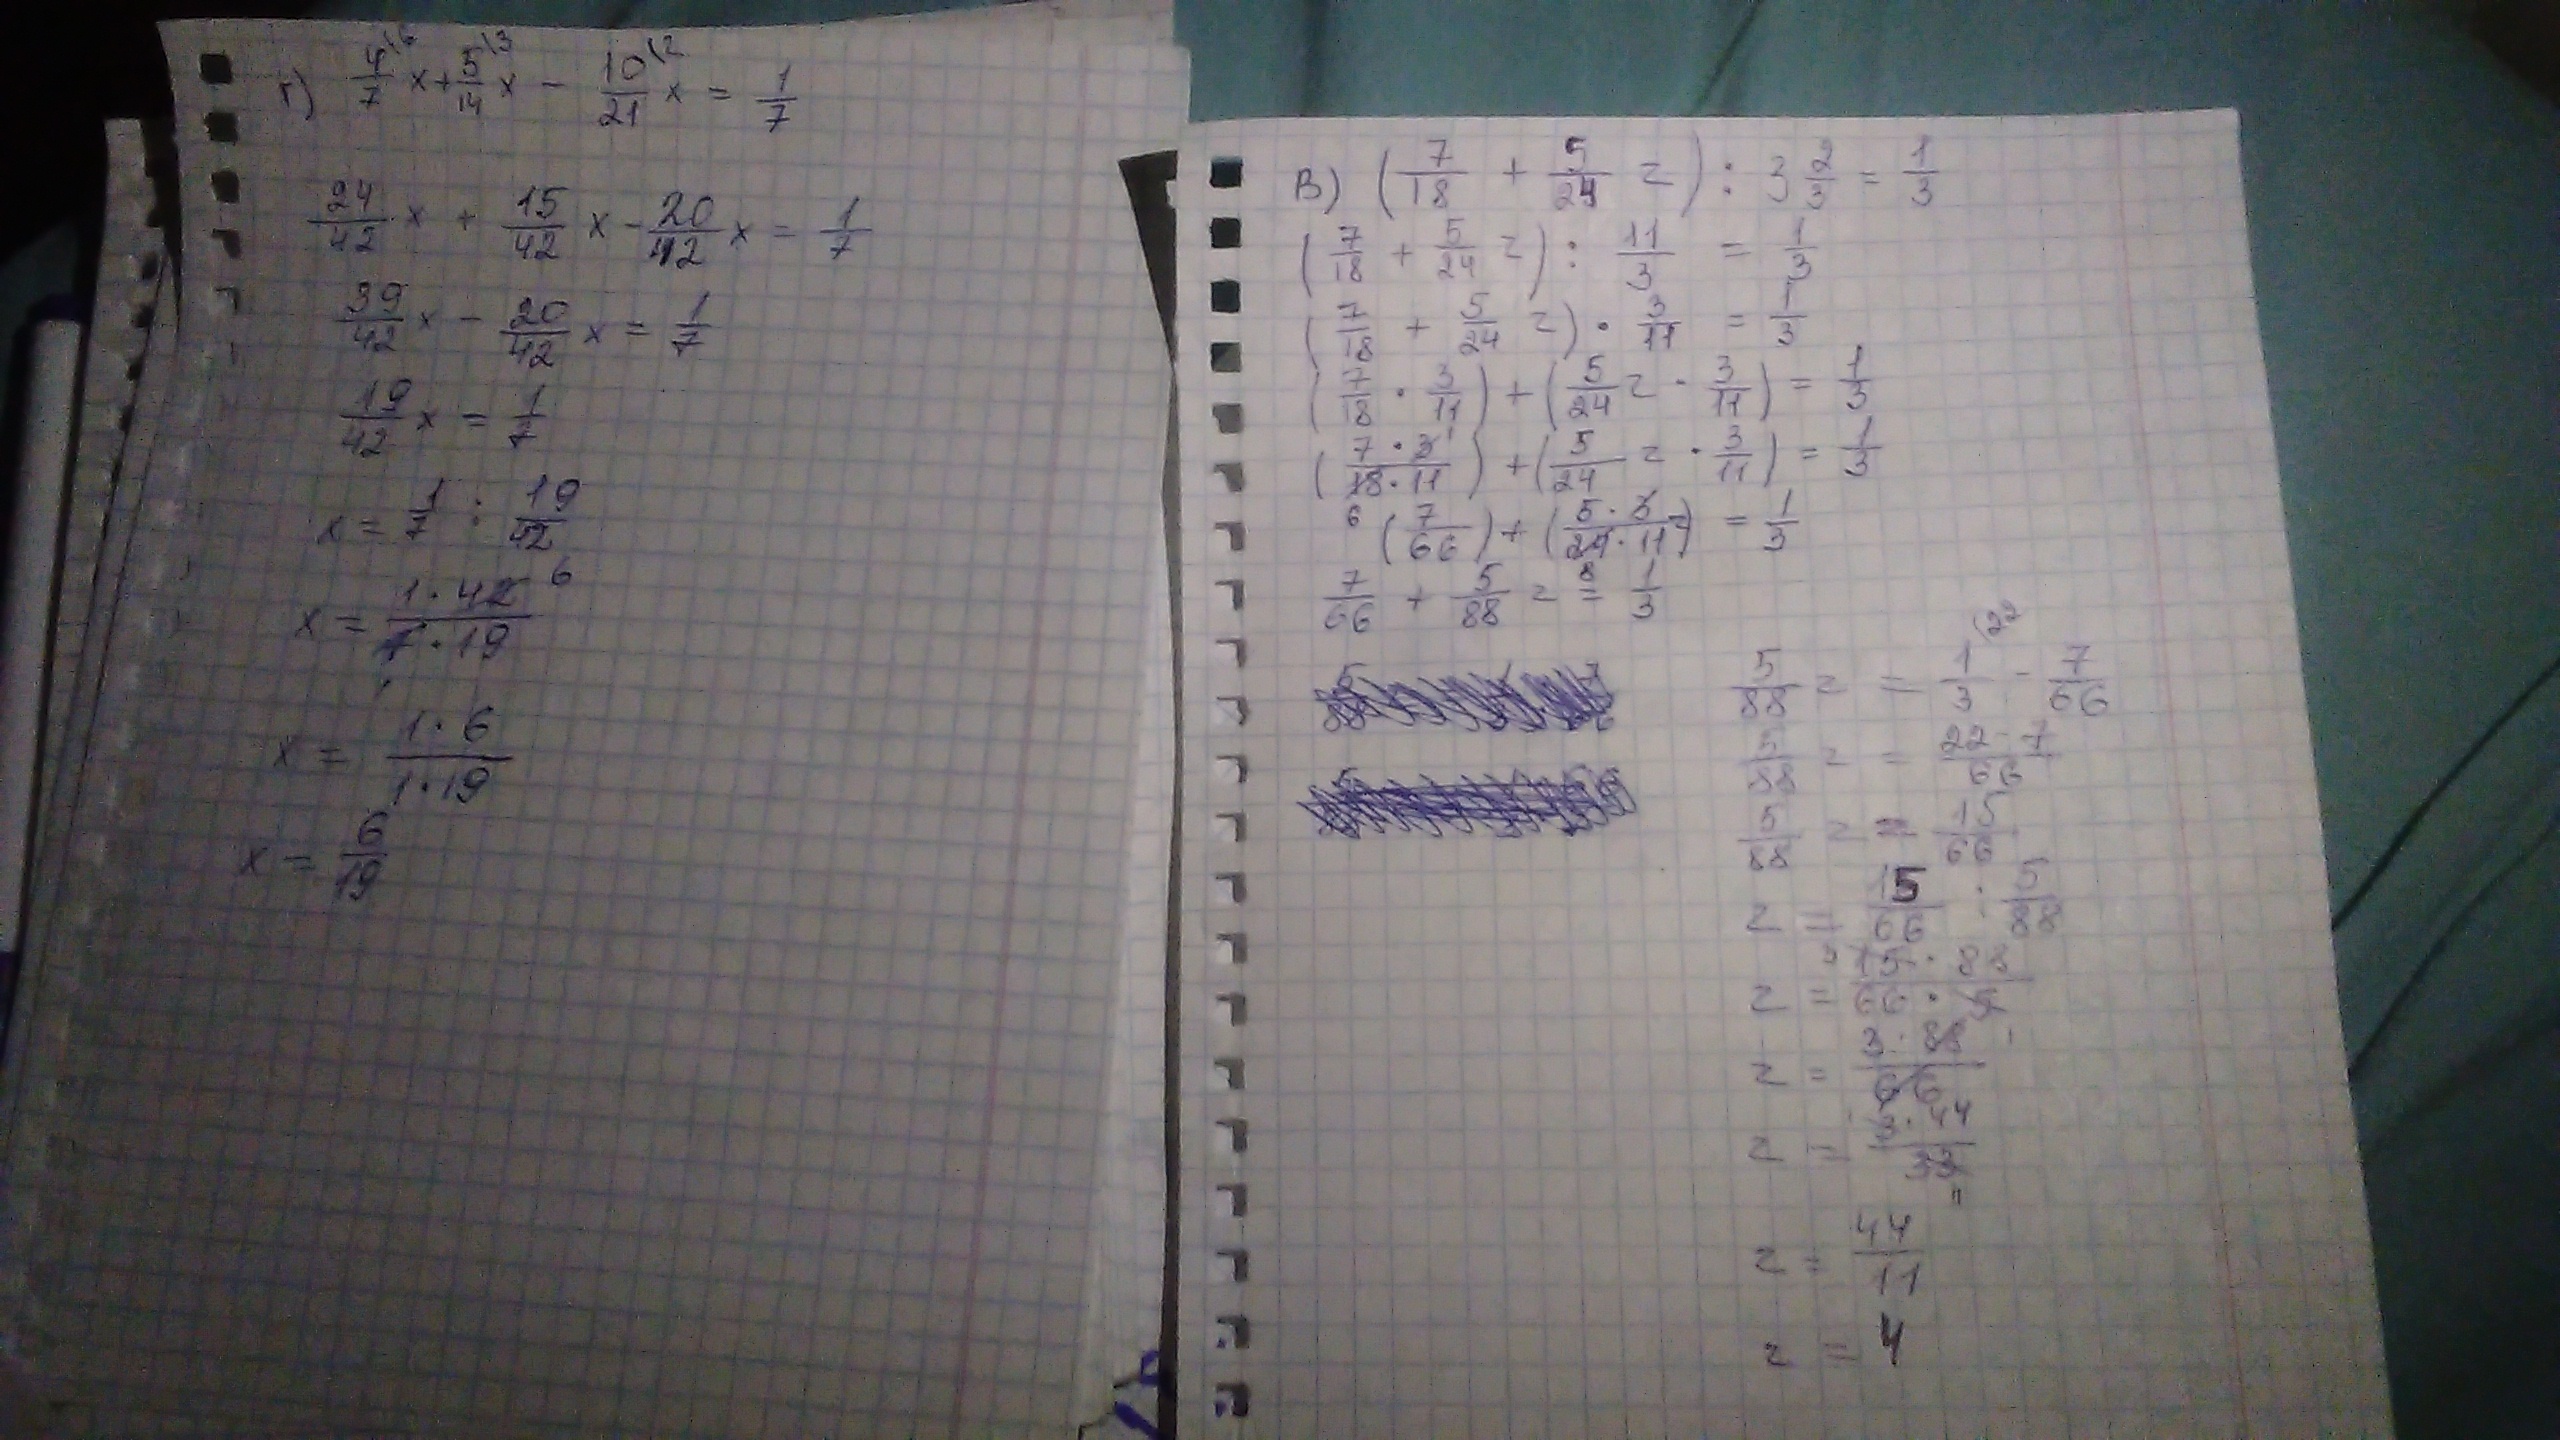 г) 4/7 \6 x + 5/14 \3 x − 10/21 \2 x = 1/7
24/42 x + 15/42 x − 20/42 x = 1/7
39/42 x − 20/42 x = 1/7
19/42 x = 1/7
x = 1/7 : 19/42
x = 1·42/7·19 6
x = 1·6/1·19
x = 6/19
в) (7/18 + 5/24 z) : 3 2/3 = 1/3
(7/18 + 5/24 z) : 11/3 = 1/3
(7/18 + 5/24 z) · 3/11 = 1/3
(7/18 · 3/11) + (5/24 z · 3/11) = 1/3
(7·3/18·11) + (5/24 z · 3/11) = 1/3
6 (7/66) + (5·3/24·11 z) = 1/3
7/66 + 5/88 z = 1/3
5/88 z = 1/3 \22 − 7/66
5/88 z = 22−7/66
5/88 z = 15/66
z = 15/66 : 5/88
z = 3 15·88/66·5 1
z = 3·88/66
z = 3·44/33 11
z = 44/11
z = 4